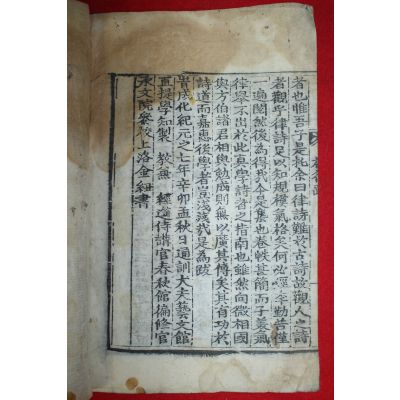 者也惟吾子是托余曰律詩難於古詩故觀人之詩
者觀乎律詩足以知規模氣格矣何必淫辛勤苦僅
一遍閱然後為得我今是集也卷帙甚簡而子
律舉不出於此真學詩者之指南也雖然向微相國
與方伯諸君相與勉成則無以廣其傳矣其有功於
詩道而嘉惠後學者豈淺淺哉是為跋
皆成化紀元之七年辛卯孟秋日通訓大夫藝文館
直提學知製 教兼 經筵侍講官春秋館編修官
承文院參校上洛金紐書